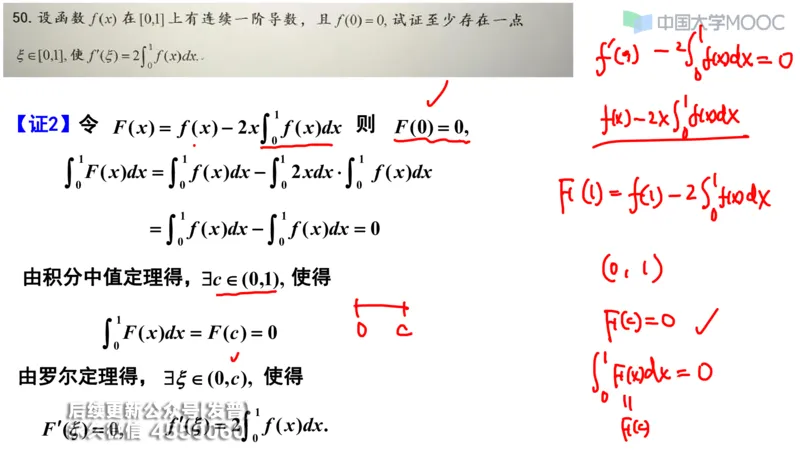 50. 设函数 f(x) 在 [0,1] 上有连续一阶导数，且 f(0)=0, 试证至少存在一点
ξ∈[0,1], 使 f′(ξ)=2∫₀¹ f(x)dx.
中国大学MOOC
【证2】令 F(x) = f(x) − 2x∫₀¹ f(x)dx 则 F(0) = 0,
∫₀¹ F(x)dx = ∫₀¹ f(x)dx − ∫₀¹ 2xdx · ∫₀¹ f(x)dx
= ∫₀¹ f(x)dx − ∫₀¹ f(x)dx = 0
由积分中值定理得，∃c ∈ (0,1), 使得
∫₀¹ F(x)dx = F(c) = 0
由罗尔定理得， ∃ξ ∈ (0,c), 使得
F′(ξ) = 0, f′(ξ) = 2∫₀¹ f(x)dx.
后续更新公众号
0 c
− 2∫₀¹ f(x)dx = 0
f(x) − 2x∫₀¹ f(x)dx
F(1) = f(1) − 2∫₀¹ f(x)dx
(0, 1)
F(c) = 0
∫₀¹ F(x)dx = 0
||
F(c)